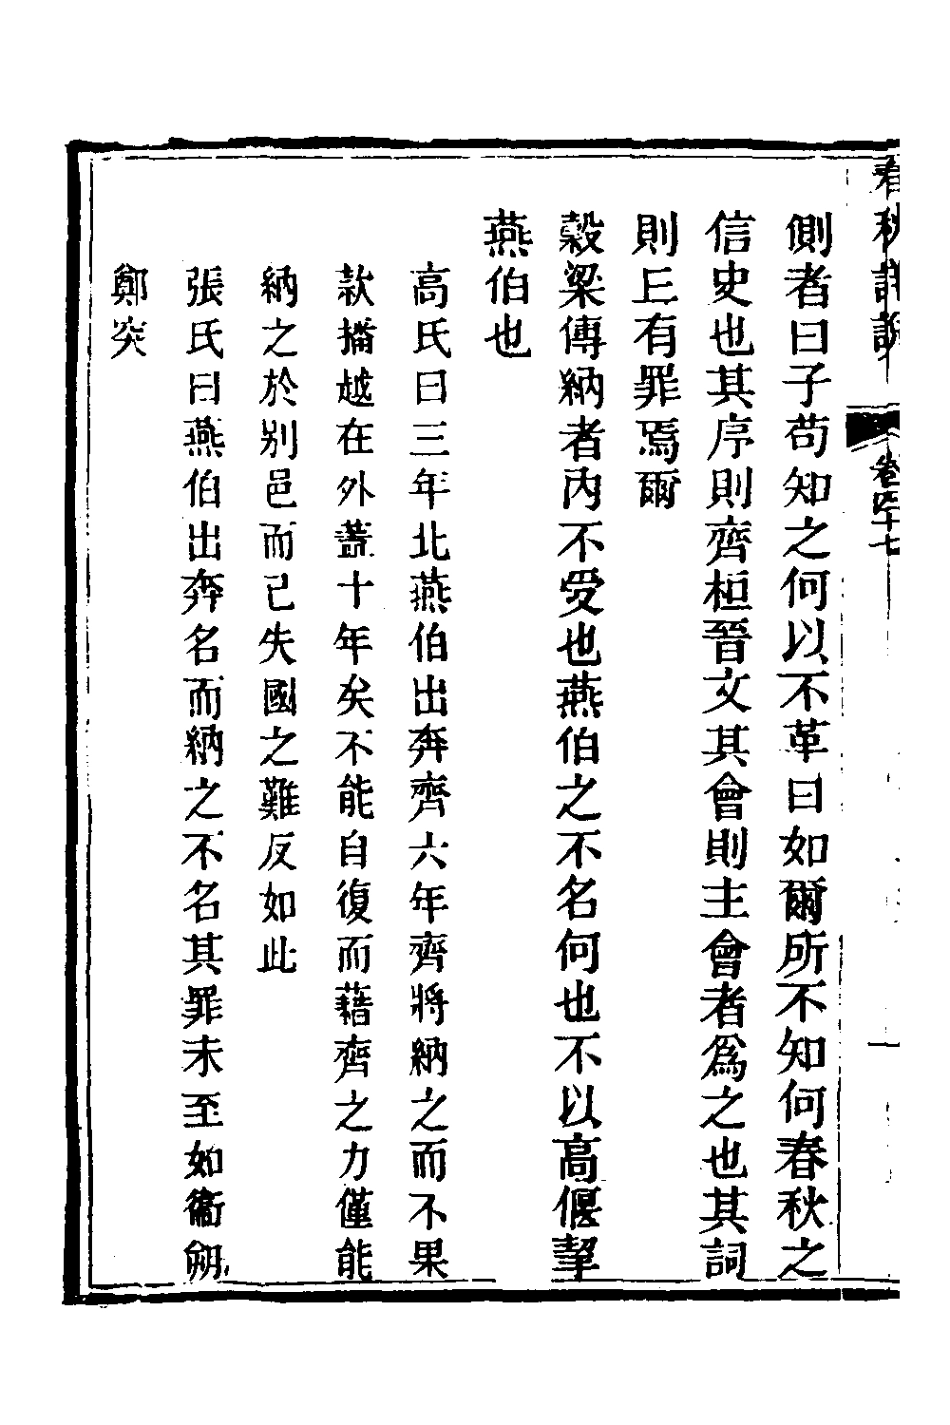 春秋詳說 卷四十七 一
側者曰子苟知之何以不革曰如爾所不知何春秋之
信史也其序則齊桓晉文其會則主會者爲之也其詞
則丘有罪焉爾
穀梁傳納者內不受也燕伯之不名何也不以高偃挈
燕伯也
高氏曰三年北燕伯出奔齊六年齊將納之而不果
款播越在外蓋十年矣不能自復而藉齊之力僅能
納之於別邑而已失國之難反如此
張氏曰燕伯出奔名而納之不名其罪未至如衞朔
鄭突